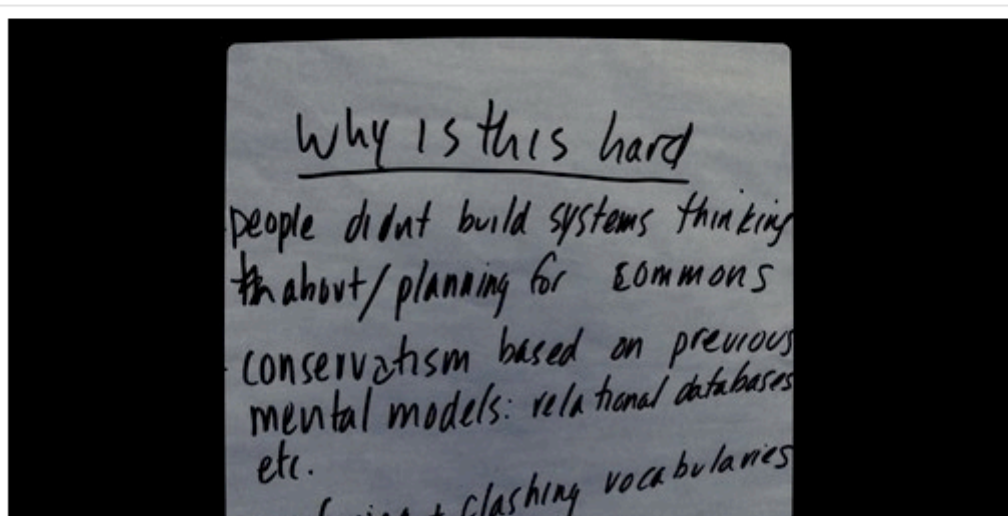 Why is this hard
people didnt build systems thinking
th about/planning for commons
conservatism based on previous
mental models: relational databases
etc.
+ clashing vocabularies